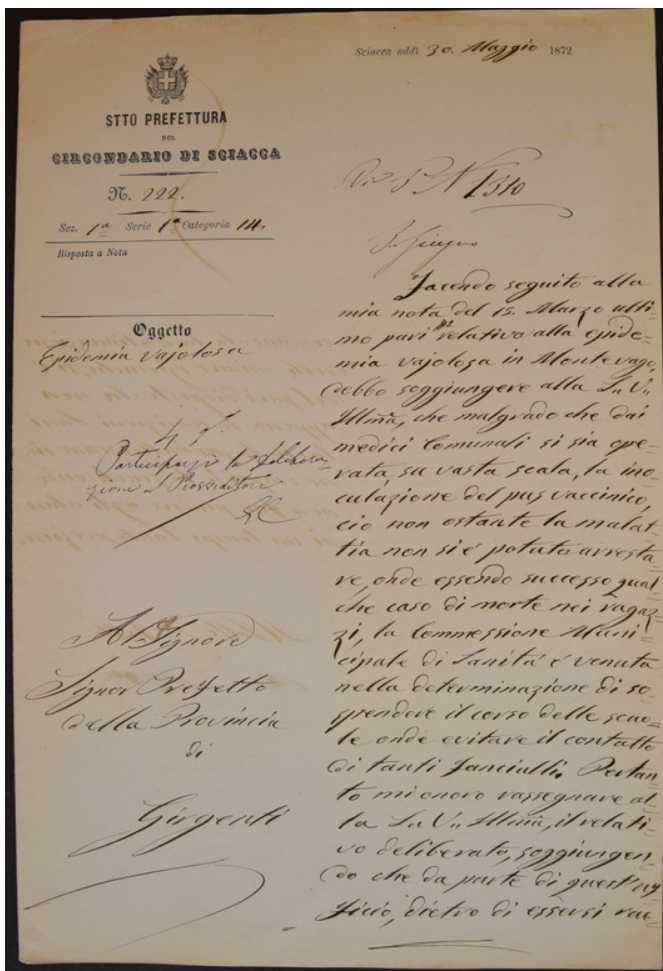 Sciacca addì 30. Maggio 1872
STTO PREFETTURA
DEL
CIRCONDARIO DI SCIACCA
N. 222.
Sez. 1ª Serie 1ª Categoria 14.
Risposta a Nota
Oggetto
Epidemia vajolosa
Participarsi la
zione al Provveditore
Al Signore
Signor Prefetto
della Provincia
di
Girgenti
N 1310
3. Giugno
Facendo seguito alla
mia nota del 15. Marzo ulti=
mo pari Nº relativa alla epide=
mia vajolosa in Montevago,
debbo soggiungere alla S. V.
Illma, che malgrado che dai
medici Comunali si sia ope=
rata su vasta scala, la ino=
culazione del pus vaccinico,
ciò non ostante la malat=
tia non si è potuta arresta=
re, onde essendo successo qual=
che caso di morte nei ragaz=
zi, la Commessione Muni=
cipale di Sanità è venuta
nella determinazione di so=
spendere il corso delle scuo=
le onde evitare il contatto
di tanti fanciulli. Pertan
to mi onoro rassegnare al
la S. V. Illma, il relati=
vo deliberato, soggiungen=
do che da parte di quest'uf
ficio, dietro di essersi rac=